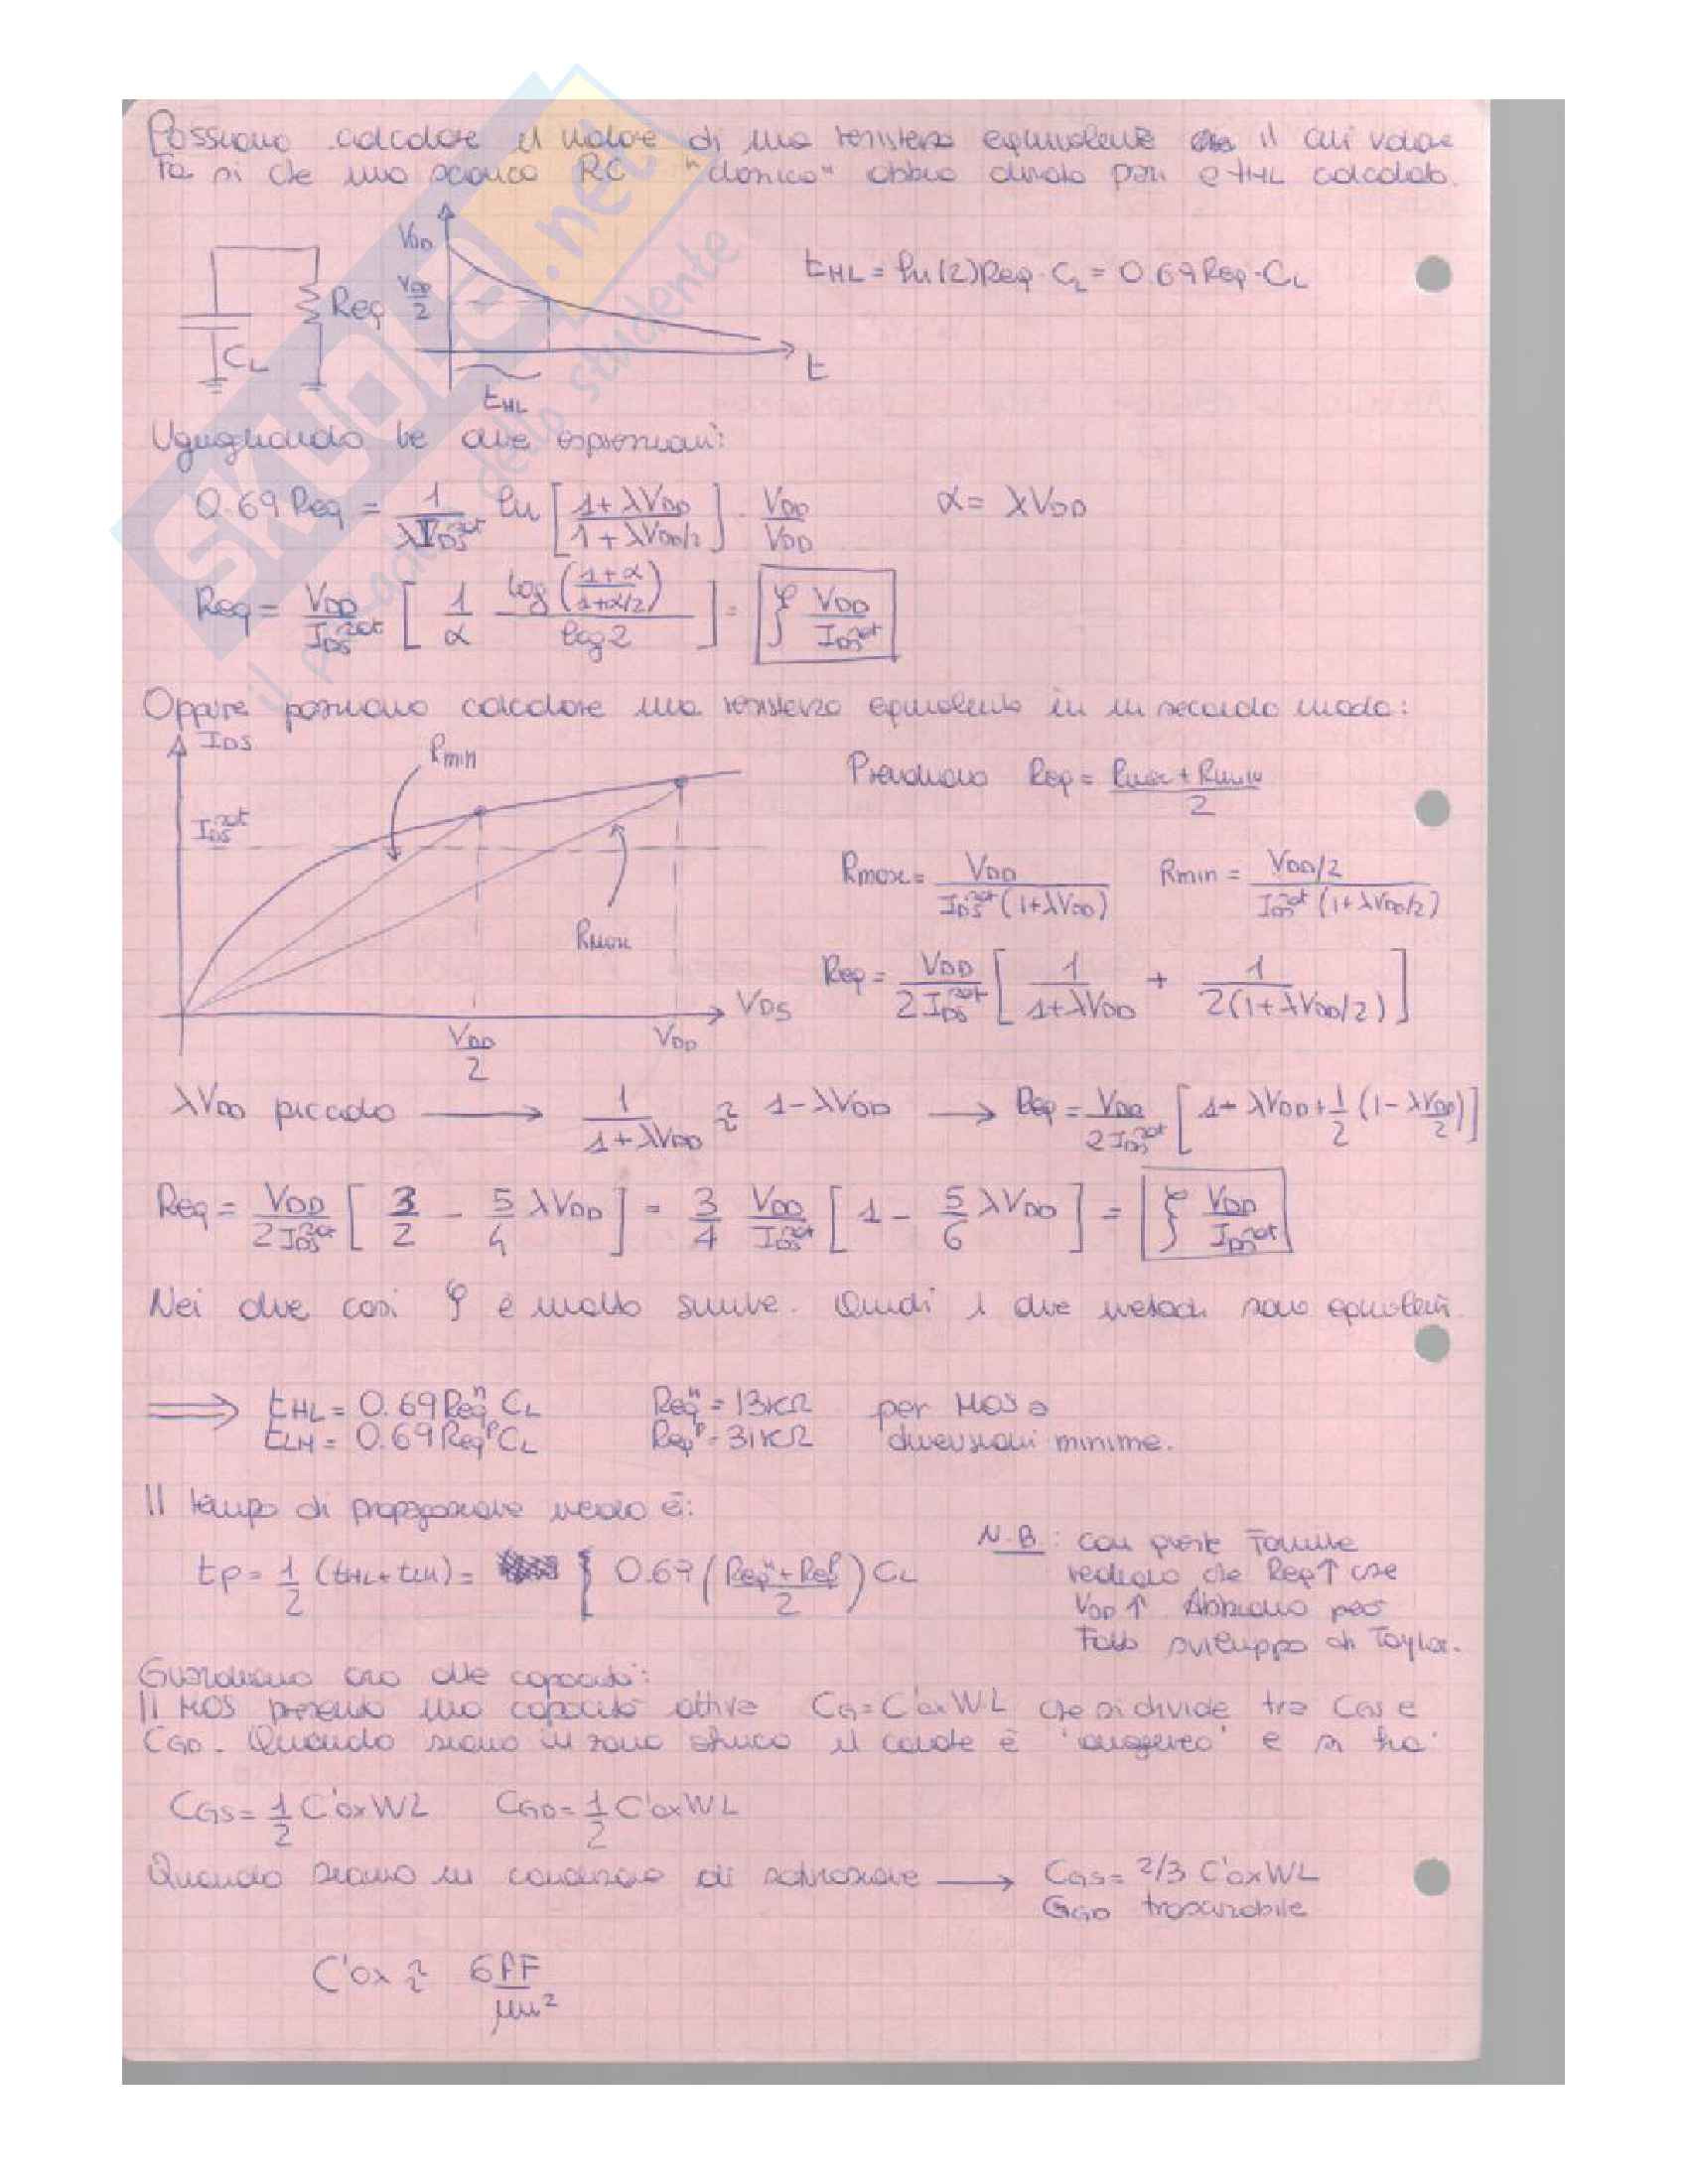 Possiamo calcolare il valore di una resistenza equivalente il cui valore
fa sì che una scarica RC "classica" abbia durata pari a tHL calcolato.
VDD
VDD/2
Req
CL
t
tHL
tHL = ln(2) Req · CL = 0.69 Req · CL
Uguagliando le due espressioni:
0.69 Req = 1/(λ IDS^sat) ln [ (1+λVDD)/(1+λVDD/2) ] · VDD/VDD
α = λVDD
Req = VDD/IDS^sat [ 1/α log((1+α)/(1+α/2))/log2 ] = ξ VDD/IDS^sat
Oppure possiamo calcolare una resistenza equivalente in un secondo modo:
IDS
Rmin
IDS^sat
Rmax
VDS
VDD/2
VDD
Prendiamo Req = (Rmax + Rmin)/2
Rmax = VDD/(IDS^sat (1+λVDD)) Rmin = (VDD/2)/(IDS^sat (1+λVDD/2))
Req = VDD/(2 IDS^sat) [ 1/(1+λVDD) + 1/(2(1+λVDD/2)) ]
λVDD piccolo → 1/(1+λVDD) ≈ 1-λVDD → Req = VDD/(2 IDS^sat) [ 1+ λVDD + 1/2 (1-λVDD/2) ]
Req = VDD/(2 IDS^sat) [ 3/2 - 5/4 λVDD ] = 3/4 VDD/IDS^sat [ 1 - 5/6 λVDD ] = ξ VDD/IDS^sat
Nei due casi ξ è molto simile. Quindi i due metodi sono equivalenti.
⇒ tHL = 0.69 Req^n CL Req^n = 13KΩ per MOS a
tLH = 0.69 Req^p CL Req^p = 31KΩ dimensioni minime.
Il tempo di propagazione medio è:
tp = 1/2 (tHL + tLH) = 0.69 ((Req^n + Req^p)/2) CL
N.B: con queste formule
vediamo che Req↑ se
VDD ↑ Abbiamo però
fatto sviluppo di Taylor.
Guardiamo ora alle capacità:
Il MOS presenta una capacità attiva CG = C'ox WL che si divide tra CGS e
CGD. Quando siamo in zona ohmica il canale è "omogeneo" e si ha
CGS = 1/2 C'ox WL CGD = 1/2 C'ox WL
Quando siamo in condizione di saturazione → CGS = 2/3 C'ox WL
CGD trascurabile
C'ox ≈ 6 fF/μm²
skuola.net
il p dello studente